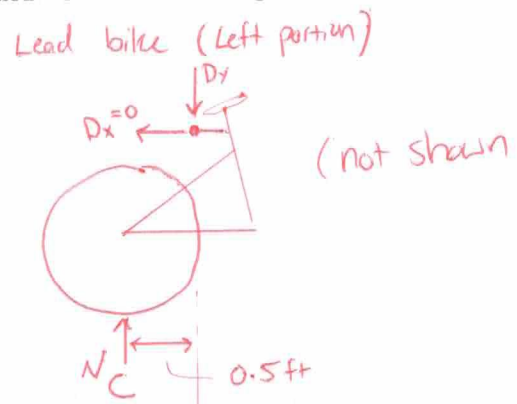 Lead bike (Left portion)
Dy
Dx=0
(not shown
NC
0.5ft